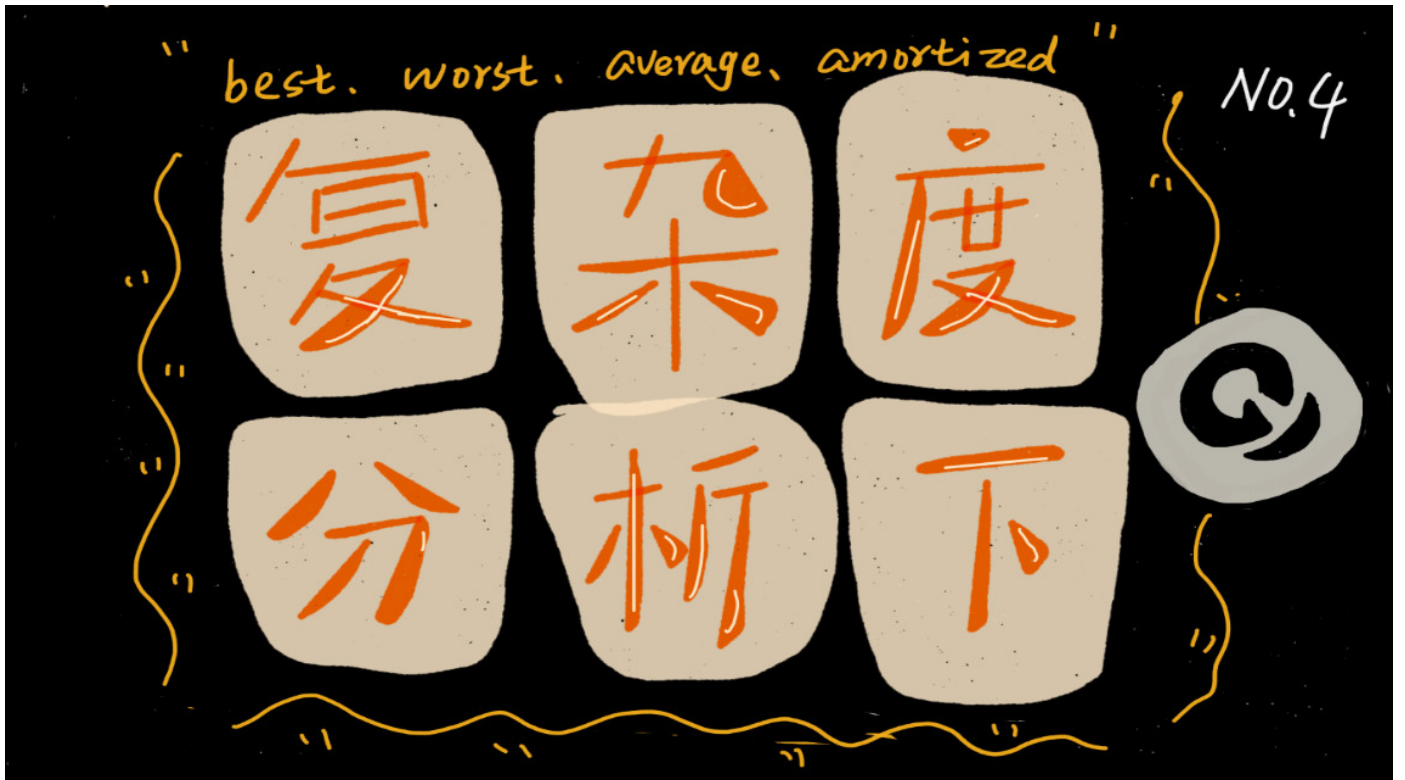 "best、worst、average、amortized"
No.4
复杂度
分析下